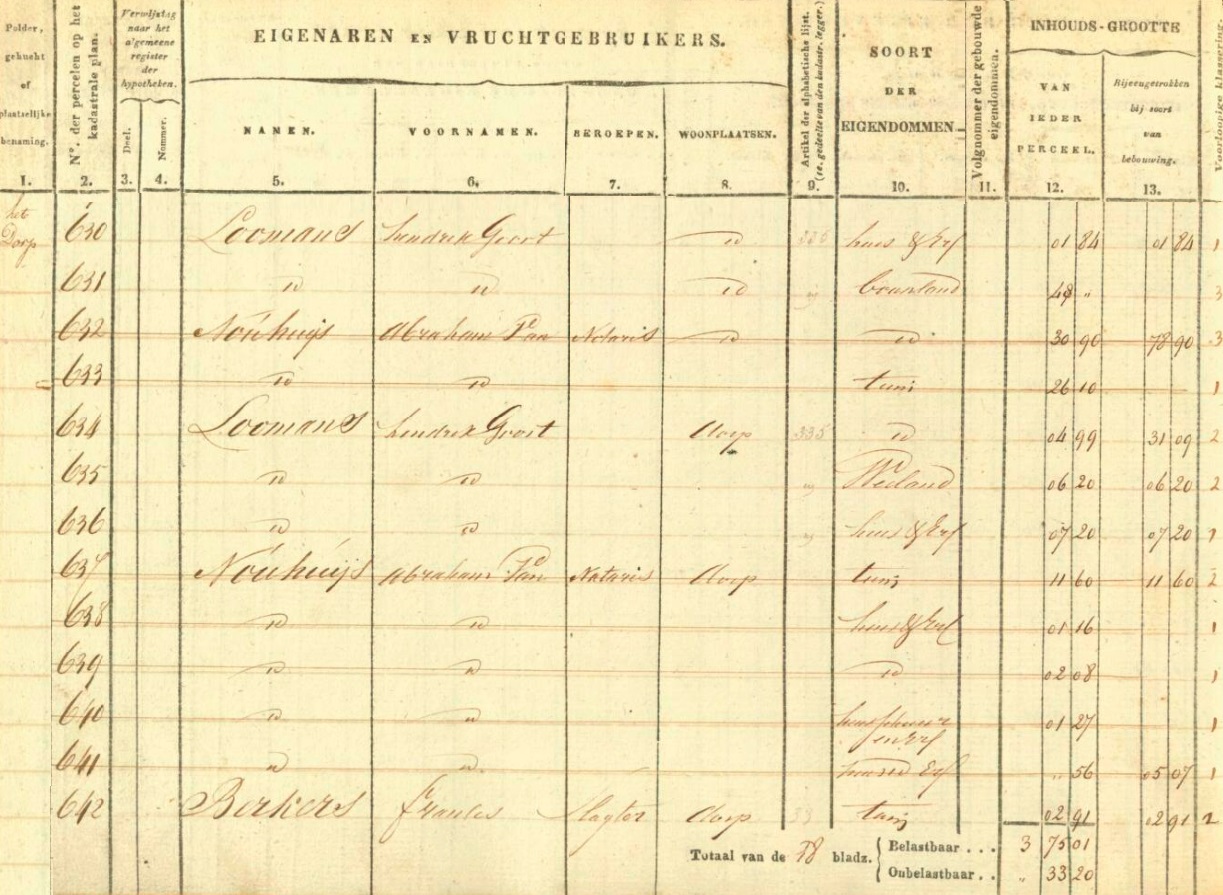 Polder, gehucht of plaatselijke benaming.
N°. der percelen op het kadastrale plan.
Verwijzing naar het algemeene register der hypotheken.
Deel.
Nommer.
EIGENAREN EN VRUCHTGEBRUIKERS.
NAMEN.
VOORNAMEN.
BEROEPEN.
WOONPLAATSEN.
Artikel der alphabetische lijst.
SOORT DER EIGENDOMMEN.
Volgnommer der gebouwde eigendommen.
INHOUDS-GROOTTE
VAN IEDER PERCEEL.
Bijeengetrokken bij soort van bebouwing.
Voorloopige klassering.
1. 2. 3. 4. 5. 6. 7. 8. 9. 10. 11. 12. 13.
het Dorp 630 Loomans hendrik Goort id 335 huis & Erf 01 84 01 84 1
631 id id id bouwland 48 „ 3
632 Nouhuijs Abraham Van Notaris id id 30 90 78 90 3
633 id id tuin 26 10 1
634 Loomans hendrik Goort dorp 335 id 04 99 31 09 2
635 id id Weiland 06 20 06 20 2
636 id id huis & Erf 07 20 07 20 1
637 Nouhuijs Abraham Van Notaris dorp tuin 11 60 11 60 2
638 id id huis & Erf 01 16 1
639 id id id 02 08 1
640 id id huis schuur en Erf 01 27 1
641 id id Erf „ 56 05 07 1
642 Berkers Slagter dorp tuin 02 91 02 91 2
Totaal van de 58 bladz. { Belastbaar . . . 3 75 01
Onbelastbaar . . „ 33 20